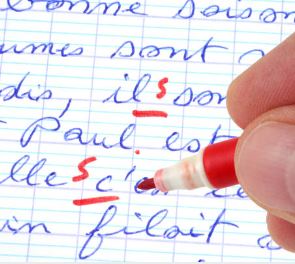 bonne saison
umes sont
dis, ils son
Paul. est
lles c'
in filait